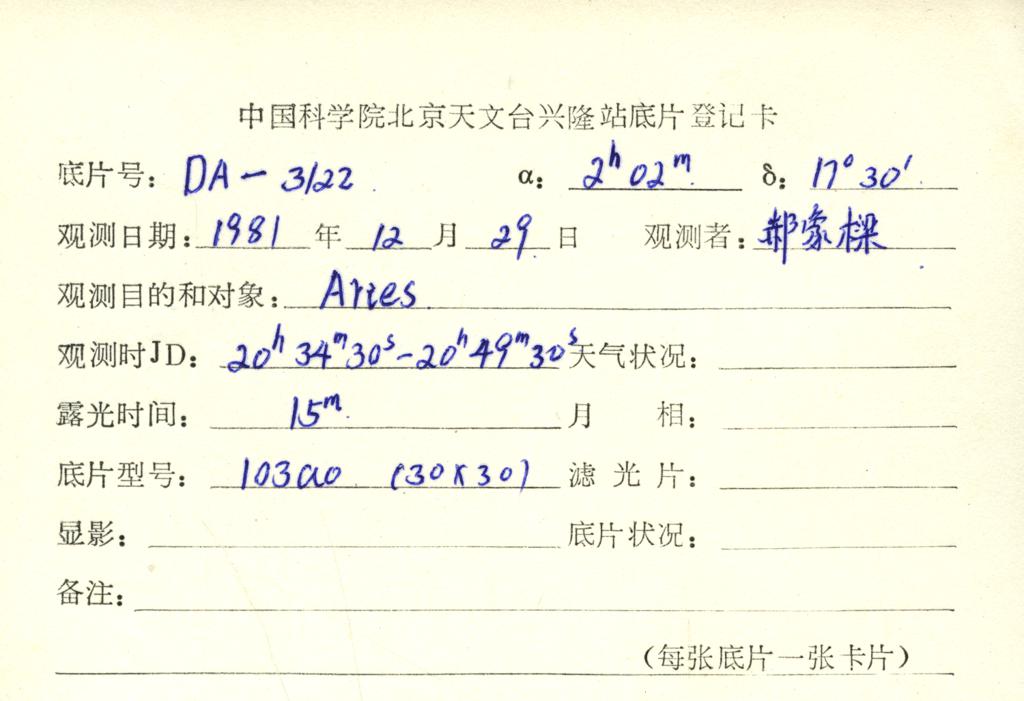 中国科学院北京天文台兴隆站底片登记卡
底片号: DA-3122 α: 2h 02m δ: 17° 30′
观测日期: 1981 年 12 月 29 日 观测者: 郝象樑
观测目的和对象: Aries
观测时JD: 20h 34m 30s - 20h 49m 30s 天气状况:
露光时间: 15m 月 相:
底片型号: 103aO (30×30) 滤 光 片:
显影: 底片状况:
备注:
(每张底片一张卡片)